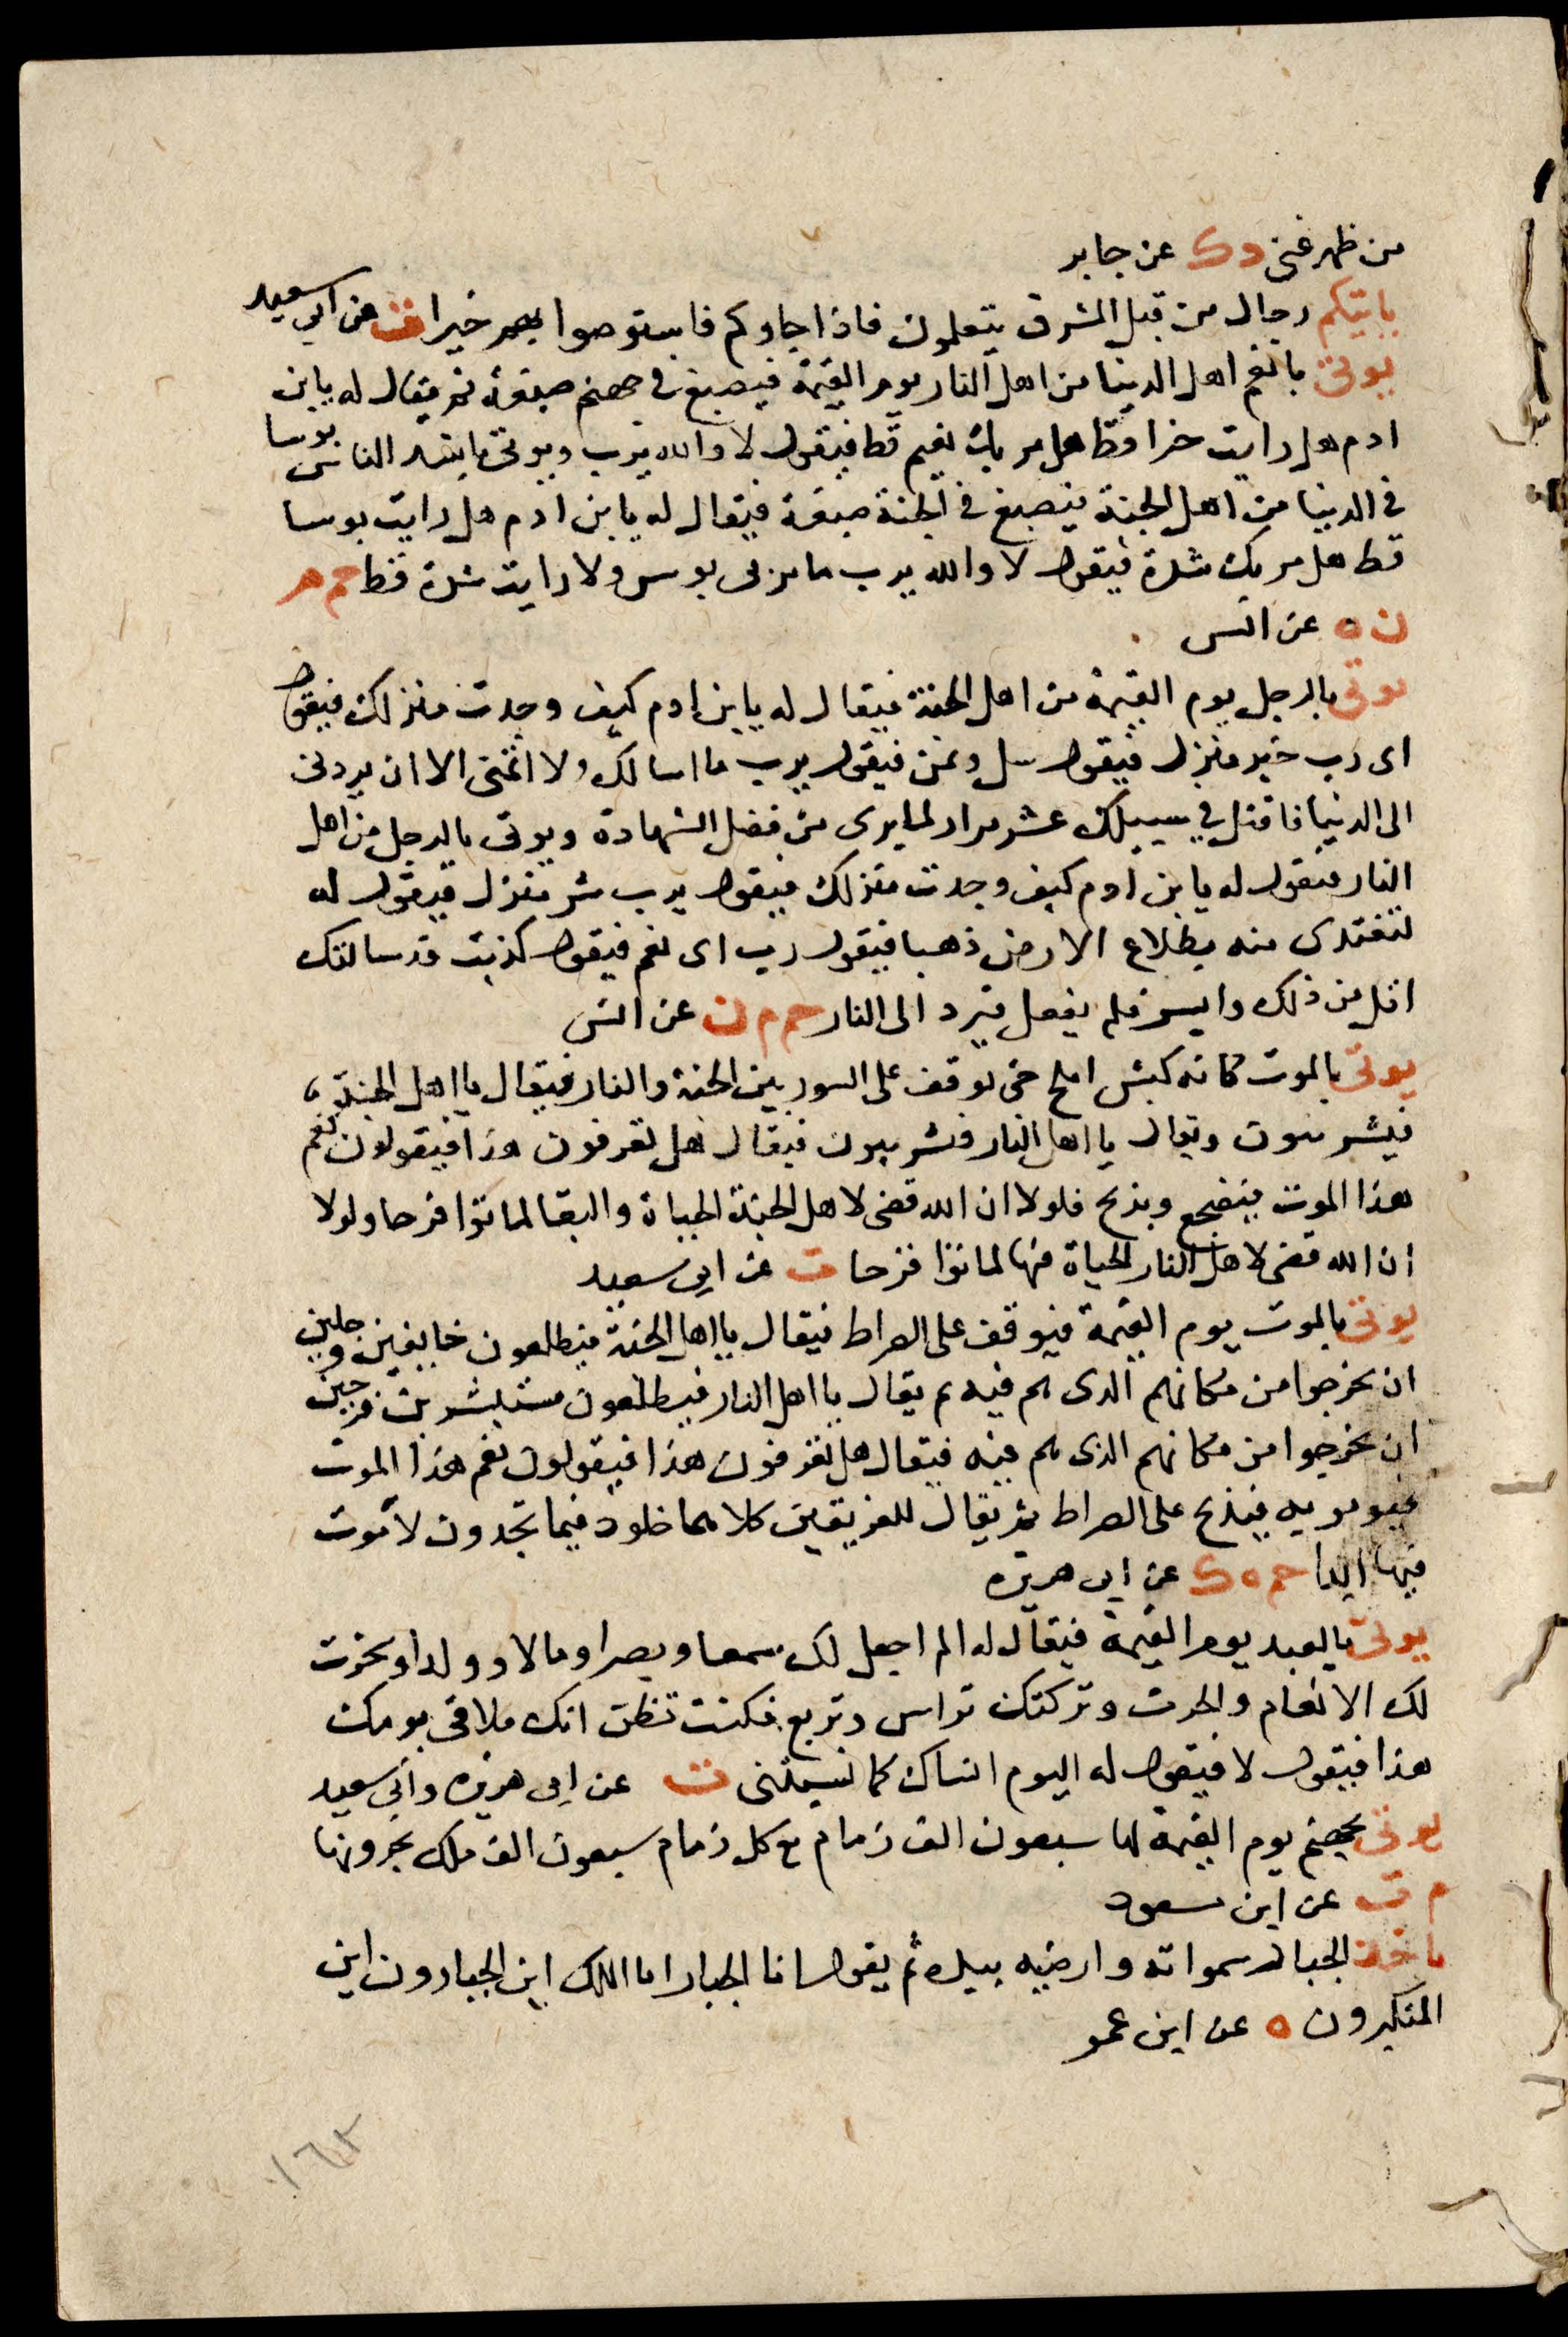 من ظهر غنى د ك عن جابر
ياتيكم رجال من قبل المشرق يتعلمون فاذا جاوكم فاستوصوا بهم خيرا ت عن ابي سعيد
يوتى بانعم اهل الدنيا من اهل النار يوم القيمة فيصبغ في جهنم صبغة ثم يقال له يابن
ادم هل رايت خيرا قط هل مر بك نعيم قط فيقول لا والله يرب ويوتى باشد الناس بوسا
في الدنيا من اهل الجنة فيصبغ في الجنة صبغة فيقال له يابن ادم هل رايت بوسا
قط هل مر بك شدة فيقول لا والله يرب ما مر بى بوس ولا رايت شدة قط حم م
ن ه عن انس
يوتى بالرجل يوم القيمة من اهل الجنة فيقال له يابن ادم كيف وجدت منزلك فيقول
اى رب خير منزل فيقول سل وتمن فيقول يرب ما اسالك ولا اتمنى الا ان يردنى
الى الدنيا فاقتل في سبيلك عشر مرار لما يرى من فضل الشهادة ويوتى بالرجل من اهل
النار فيقول له يابن ادم كيف وجدت منزلك فيقول يرب شر منزل فيقول له
لتفتدى منه بطلاع الارض ذهبا فيقول رب اى نعم فيقول كذبت قد سالتك
اقل من ذلك وايسر فلم يفعل فيرد الى النار حم م ن عن انس
يوتى بالموت كانه كبش املح حتى يوقف على السور بين الجنة والنار فيقال يا اهل الجنة
فيشرىبون ويقال يا اهل النار فيشرىبون فيقال هل تعرفون هذا فيقولون نعم
هذا الموت فيضجع ويذبح فلولا ان الله قضى لاهل الجنة الحياة والبقا لماتوا فرحا ولولا
ان الله قضى لاهل النار الحياة فيها لماتوا فرحا ت عن ابي سعيد
يوتى بالموت يوم القيمة فيوقف على الصراط فيقال يا اهل الجنة فيطلعون خايفين وجلين
ان يخرجوا من مكانهم الدى هم فيه ثم يقال يا اهل النار فيطلعون مستبشرين فرحين
ان يخرجوا من مكانهم الذى هم فيه فيقال هل تعرفون هذا فيقولون نعم هذا الموت
فيومر به فيذبح على الصراط ثم يقال للفريقين كلاهما خلود فيما تجدون لا موت
فيها ابدا حم ه ك عن ابى هريره
يوتى بالعبد يوم القيمة فيقال له الم اجعل لك سمعا وبصرا ومالا وولدا وسخرت
لك الانعام والحرث وتركتك تراس وتربع فكنت تظن انك ملاقى يومك
هذا فيقول لا فيقول له اليوم انساك كما نسيتنى ت عن ابى هريره وابي سعيد
يوتى بجهنم يوم القيمة لها سبعون الف زمام مع كل زمام سبعون الف ملك يجرونها
م ت عن ابن مسعود
ياخذ الجبار سمواته وارضيه بيده ثم يقول انا الجبار انا الملك اين الجبارون اين
المتكبرون ه عن ابن عمر
١٦٢